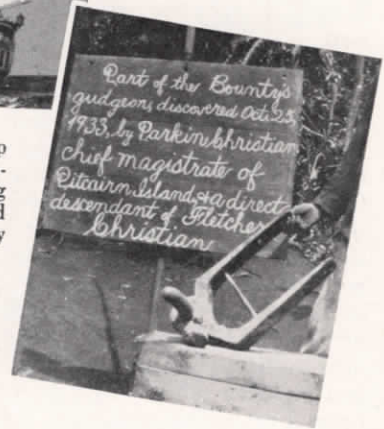 Part of the Bounty's
gudgeons, discovered Oct. 25,
1933, by Parkin Christian
chief magistrate of
Pitcairn Island, & a direct
descendant of Fletcher
Christian